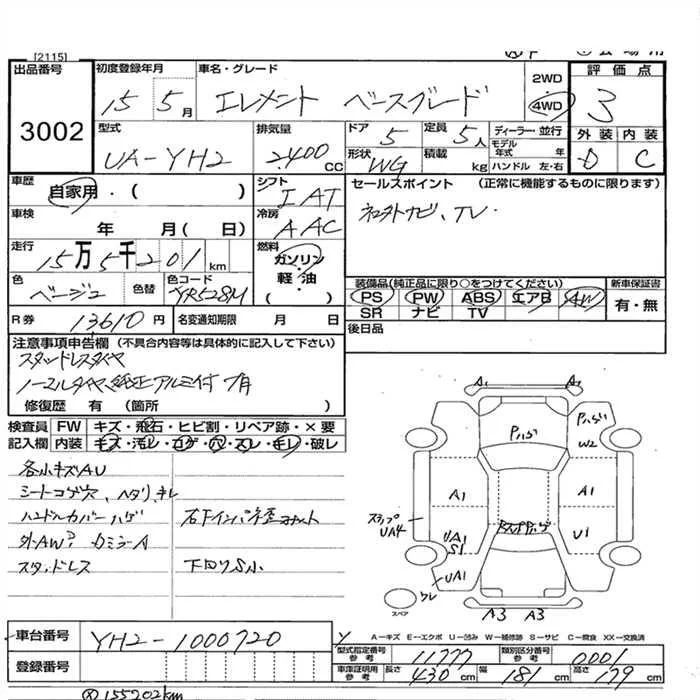 [2115]
出品番号
3002
初度登録年月
15 5月
車名・グレード
エレメント ベースグレード
2WD
4WD
評価点
3
外装 内装
D C
型式
UA-YH2
排気量
2400cc
ドア 5
定員 5人
ディーラー・並行
形状 WG
積載 kg
モデル年式 年
ハンドル 左・右
車歴
自家用・( )
シフト
IAT
セールスポイント (正常に機能するものに限ります)
TV
車検
年 月( 日)
冷房
AAC
走行
15万5千201km
燃料
ガソリン
軽油
( ・ )
色
ベージュ
色替
色コード
YR528M
装備品(純正品に限り○をつけてください)
新車保証書
PS PW ABS エアB AW
SR ナビ TV
有・無
R券 13610円
名変通知期限 月 日
後日品
注意事項申告欄 (不具合内容等は具体的に記入して下さい)
スタッドレスタイヤ
ノーマルタイヤ、純正アルミ付
修復歴 有 (箇所 )
検査員記入欄
FW キズ・飛石・ヒビ割・リペア跡・×要
内装 キズ・汚レ・コゲ・穴・スレ・キレ・破レ
各小キズAU
シートコゲ穴、ヘタリ、キレ
ハンドルカバーハゲ
外AW
スタッドレス
下回りS小
A1 A1
W2
A1 A1
UA4
UA1
S1
U1
UA1
スペア
A3 A3
A−キズ E−エクボ U−凹み W−補修跡 S−サビ C−腐食 XX−交換済
車台番号
YH2-1000720
登録番号
型式指定番号 参考 11777
類別区分番号 参考 0001
車庫証明用 参考 長さ 430cm 幅 181cm 高さ 179cm
155202km